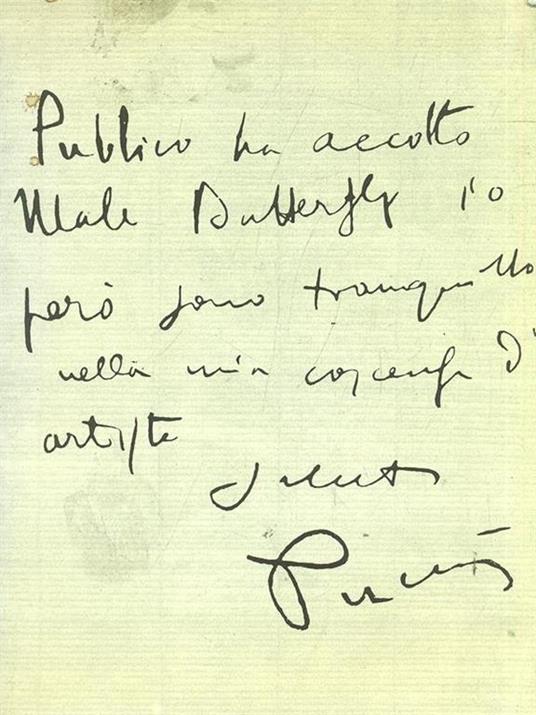 Publico ha accolto
Male Butterfly io
però sono tranquillo
nella mia coscienza d'
artista
Saluti
Puccini